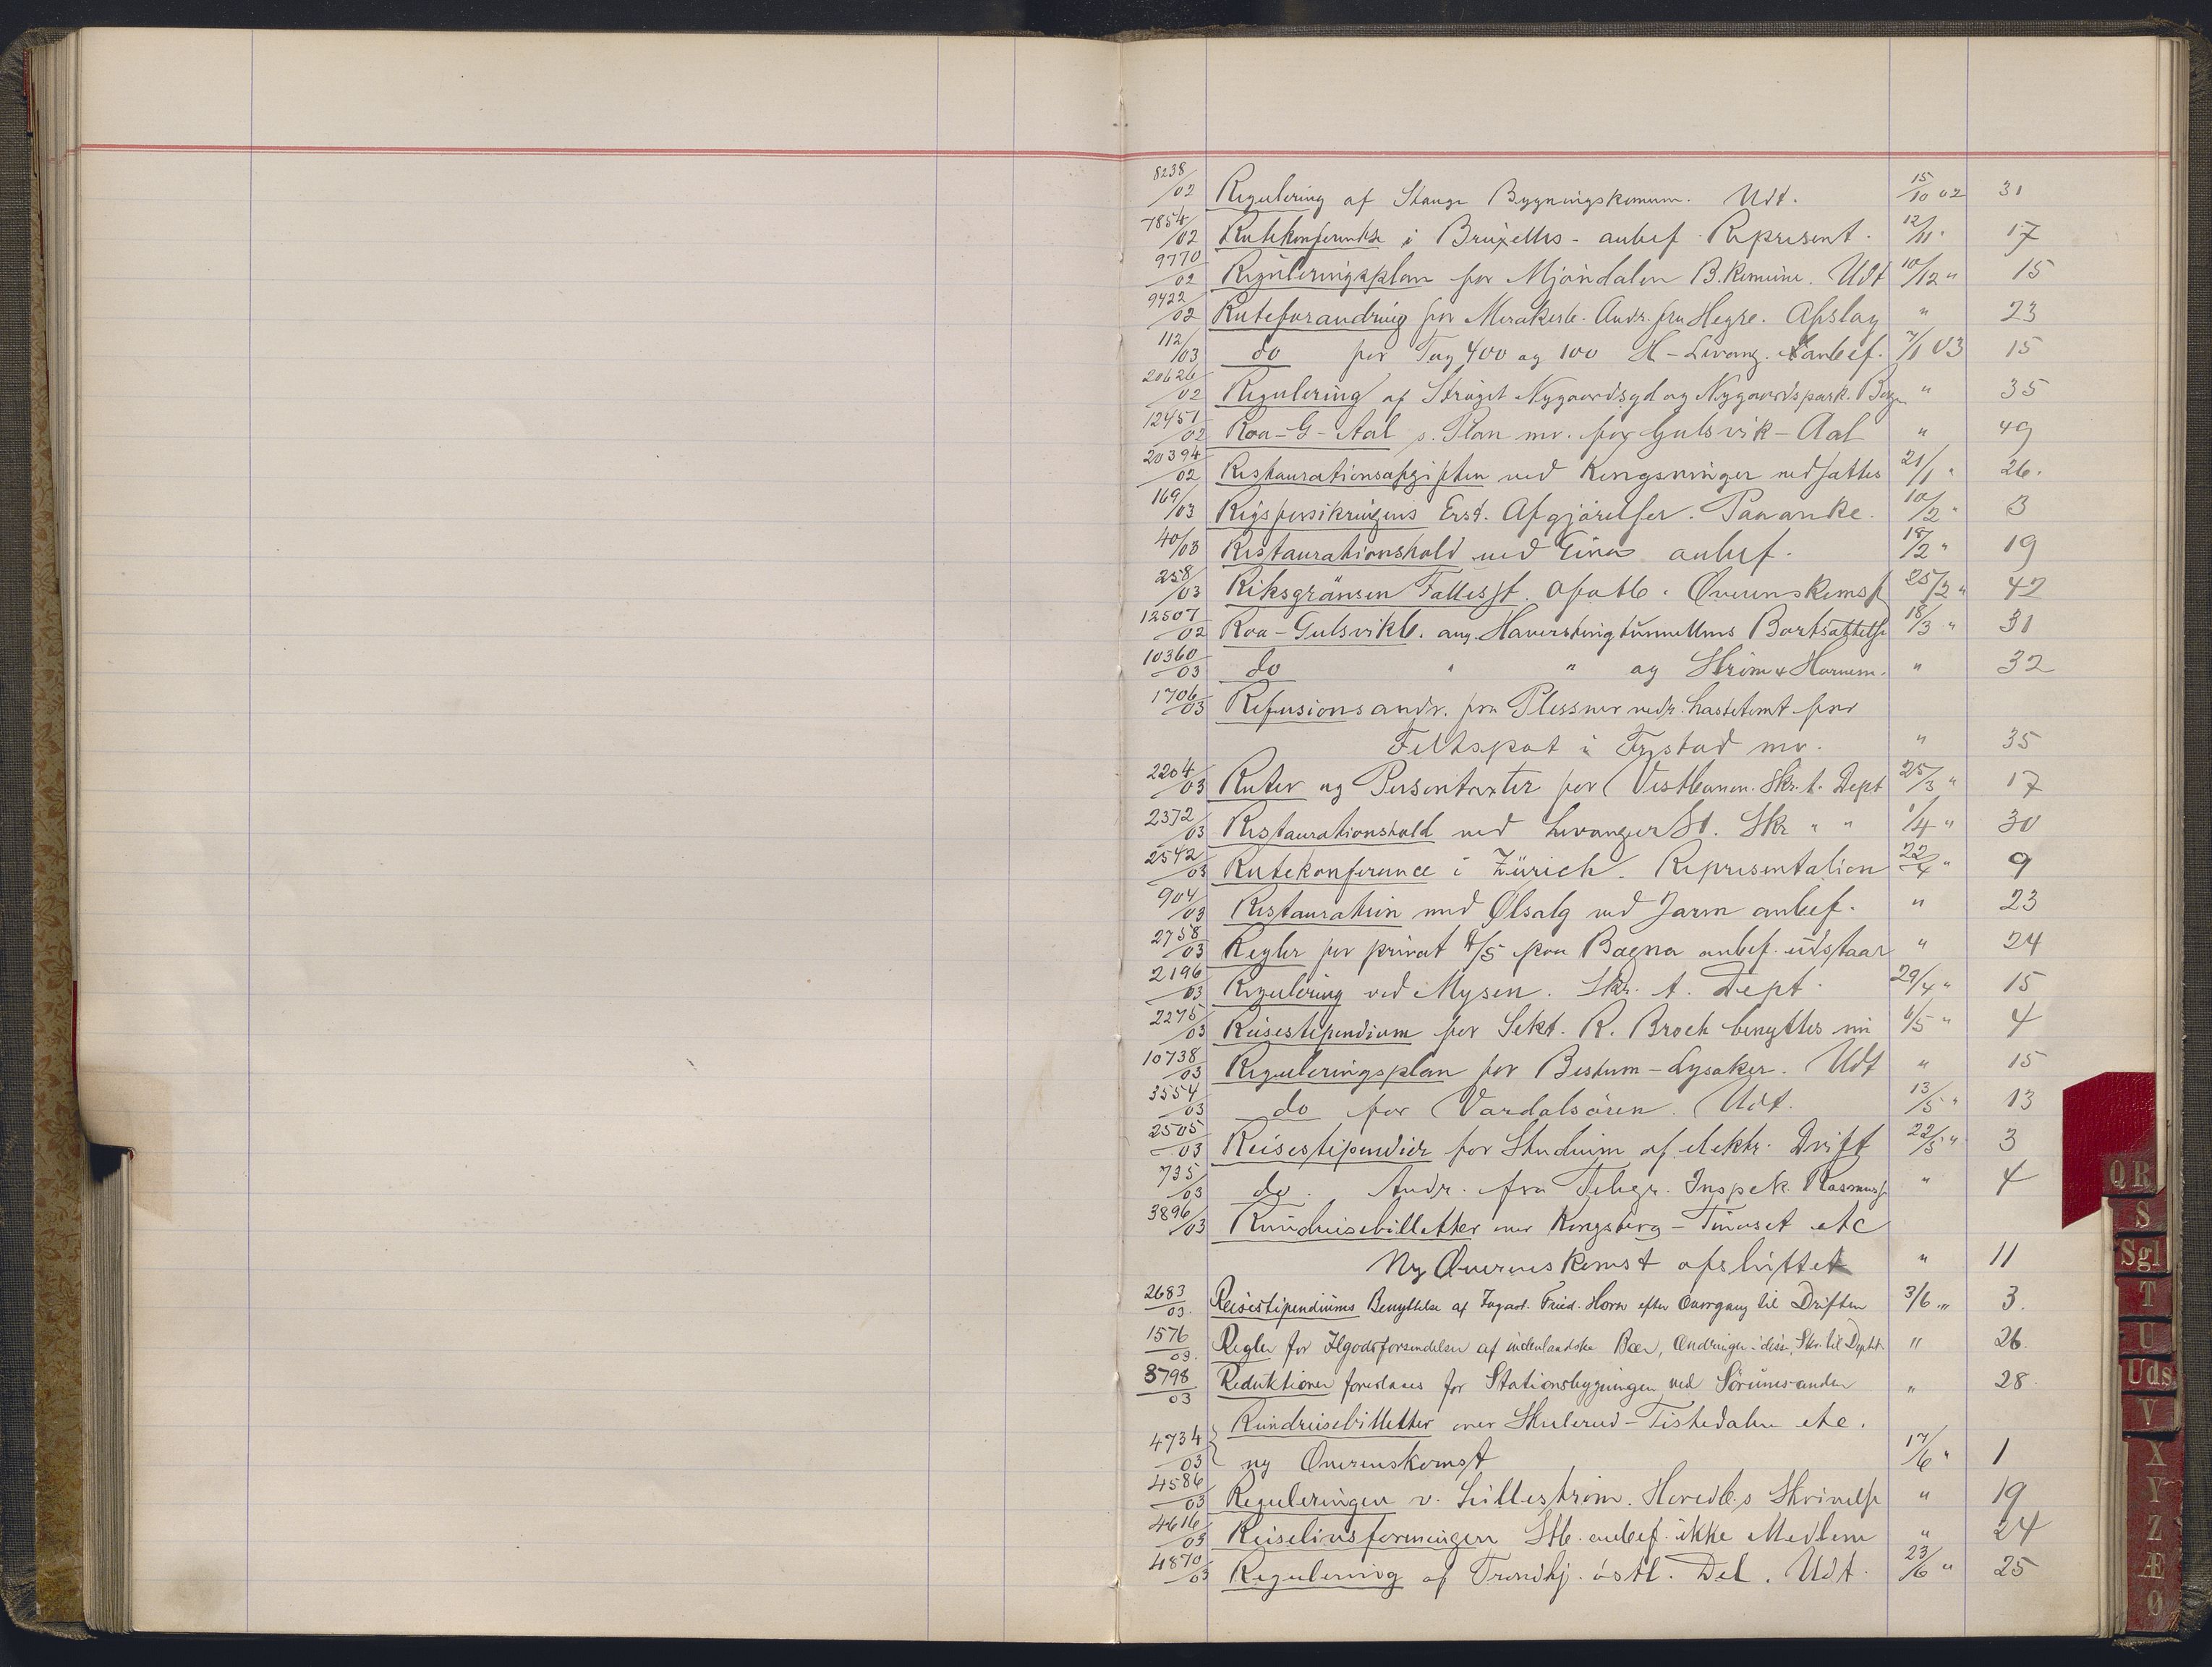 8238/02 Regulering af Stange Bygningskomum. Udt. 15/10 02 31
7854/02 Rutekonferentse i Bruxelles - anbef. Represent. 12/11 " 17
9770/02 Reguleringsplan for Mjöndalen B. Komune. Udt 10/12 " 15
9422/02 Ruteforandring for Merakerb. Andr. fra Hegre. Afslag " 23
112/03 do for Tog 400 og 100 H - Levang. anbef. 7/1 03 15
20626/02 Regulering af Strøget Nygaardsgd og Nygaardspark. Berg " 35
12451/02 Roa - G - Aal s. Plan mv. for Gulsvik - Aal " 49
20394/02 Restaurationsafgiften ved Kongsvinger nedsattes 21/1 " 26.
169/03 Rigsforsikringens Erst. Afgjörelser. Paaanke. 10/2 " 3
40/03 Restaurationshold ved Eina anbef. 18/2 " 19
258/03 Riksgränsen Fællesst. Ofotb. Overenskomst 25/2 " 42
12507/02 Roa - Gulsvikb. ang. Haverstingtunnellens Bortsættelse 18/3 " 31
10360/03 do " " og " 32
1706/03 Refusionsandr. fra Plessner vedr. Lastetomt for
Feltspat i Tystad mv. " 35
2204/03 Ruter og Persontaxter for Vestbanen. Skr. t. Dept 25/3 " 17
2372/03 Restaurationshold ved Levanger St. Skr " " 1/4 " 30
2542/03 Rutekonference i Zürich. Representation 22/4 " 9
904/03 Restauration med Ølsalg ved Jaren anbef. " 23
2758/03 Regler for privat paa anbef. udstaar " 24
2196/03 Regulering ved Mysen. Skr. t. Dept. 29/4 " 15
2275/03 Reisestipendium for Sekt. R. Broch benyttes 6/5 " 4
10738/03 Reguleringsplan for Bestum - Lysaker. Udt " 15
3554/03 do for Værdalsören. Udt. 13/5 " 13
2505/03 Reisestipendier for Studium af elektr. Drift 22/5 " 3
735/03 do. Andr. fra Telegr. Inspek. Rasmuss " 4
3896/03 Rundreisebilletter over Kongsberg - Tinoset etc
Ny Overenskomst afsluttet " 11
2683/03. Reisestipendiums Benyttelse af Ingeniör. Fried. Horn efter Overgang til Driften 3/6 " 3.
1576/03. Regler for Ilgodsforsendelser af indenlandske Bær, Ændringer i disse, Skr. til Deptet " 26.
3798/03 Reduktioner foreslaaes for Stationsbygningen ved Sörumsanden " 28.
Rundreisebilletter over Skulerud - Tistedalen etc.
4734/03 ny Overenskomst 17/6 " 1
4586/03 Reguleringen v. Lilleström. Hovedb.s Skrivelse " 19
4616/03 Reiselivsforeningen Stb. anbef. ikke Medlem " 24
4870/03 Regulering af Trondhj. östl. Del. Udt. 23/6 " 25
QR
S
Sgl
T
U
Uds
V
X
Y
Z
Æ
Ø